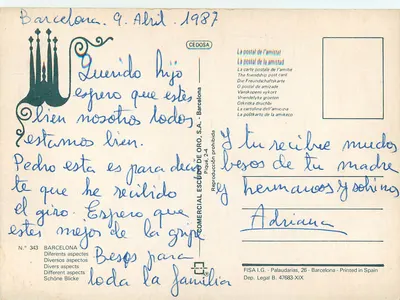 Barcelona. 9. Abril. 1987
Querido hijo
espero que estes
bien nosotros todos
estamos bien.
Pedro esta es para decir
te que he recibido
el giro. Espero que
estes mejor de la gripe
Besos para
toda la familia
Y tu recibe muchos
besos de tu madre
y hermanos y sobrinos
Adriana
CEDOSA
COMERCIAL ESCUDO DE ORO, S.A. - Barcelona
Reproducción prohibida
La postal de l'amistat
La postal de la amistad
La carte postale de l'amitié
The friendship post card
Die Freundschaftskarte
O postal de amizade
Vänskapens vykort
La cartolina dell'amicizia
N.º 343 BARCELONA
Diferents aspectes
Diversos aspectos
Divers aspects
Different aspects
Schöne Blicke
FISA I.G. - Palaudarias, 26 - Barcelona - Printed in Spain
Dep. Legal B. 47683-XIX